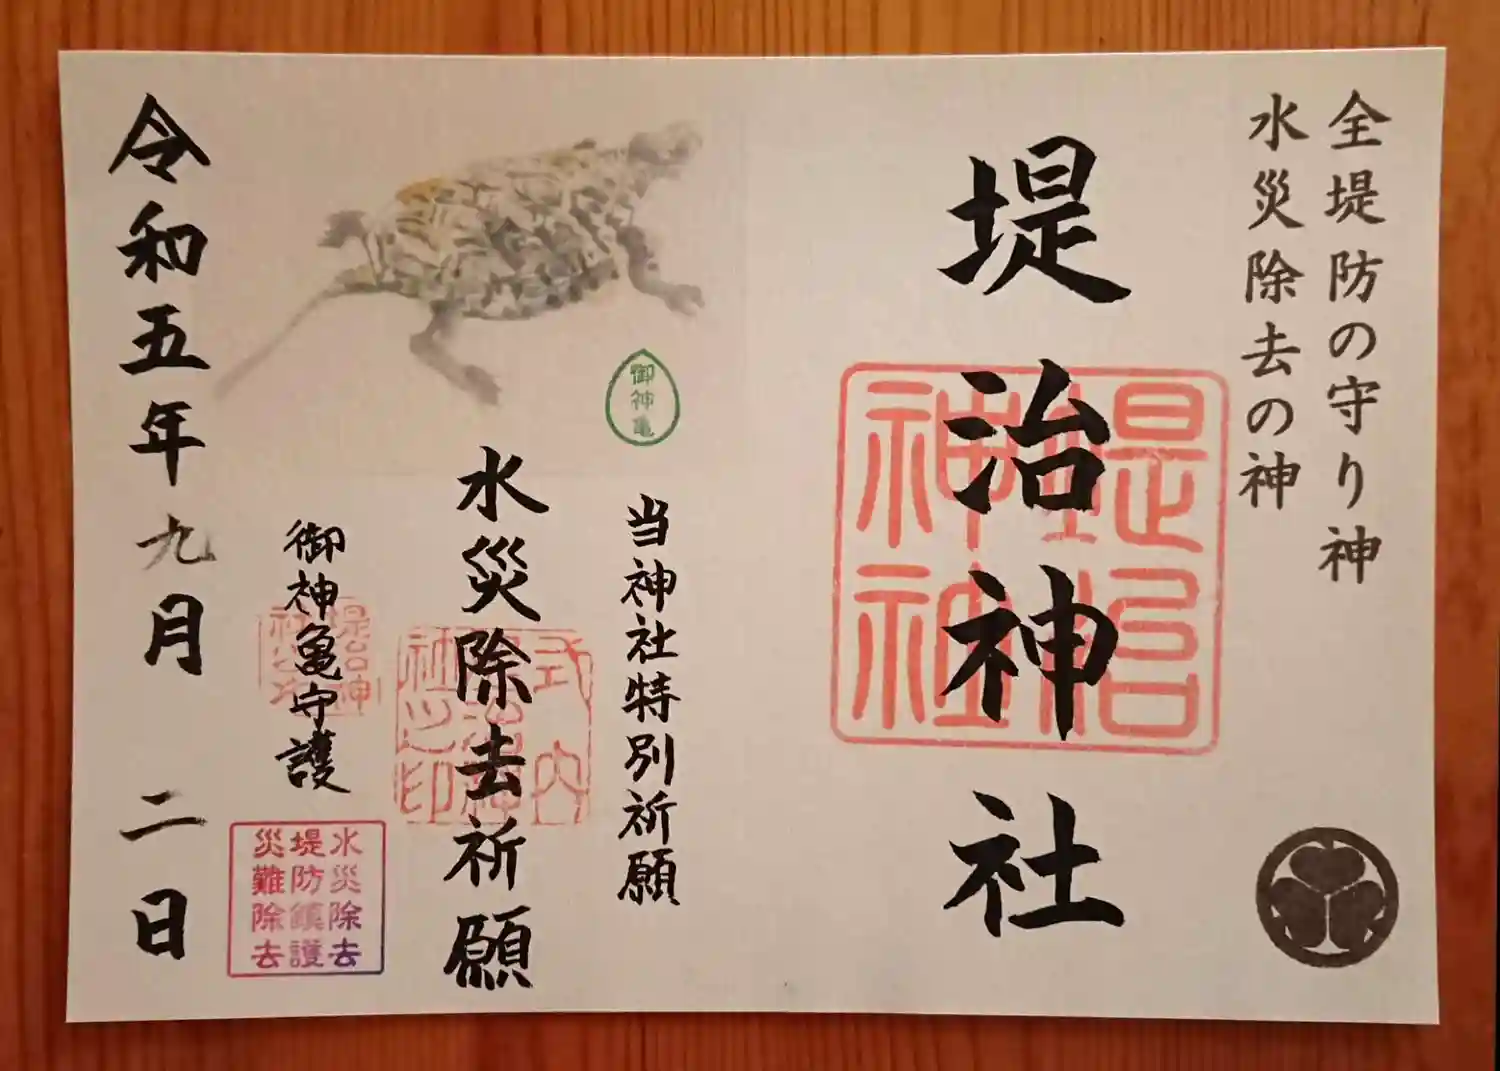 全堤防の守り神
水災除去の神
堤治神社
堤治
神社
御神亀
当神社特別祈願
水災除去祈願
式内
堤治神
社之印
御神亀守護
堤治神
社之印
水災除去
堤防鎮護
災難除去
令和五年九月二日